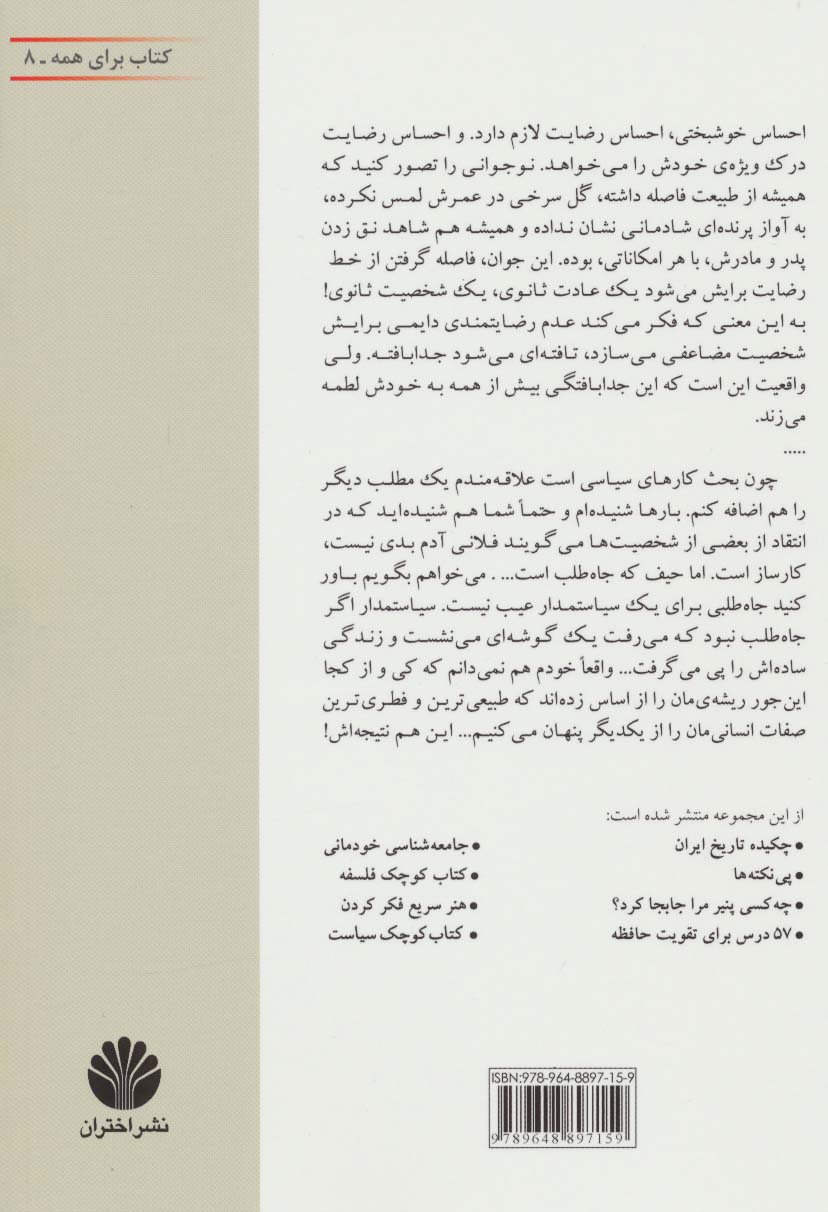 کتاب برای همه ـ ۸
احساس خوشبختی، احساس رضایت لازم دارد. و احساس رضایت
درک ویژه‌ی خودش را می‌خواهد. نوجوانی را تصور کنید که
همیشه از طبیعت فاصله داشته، گُل سرخی در عمرش لمس نکرده،
به آواز پرنده‌ای شادمانی نشان نداده و همیشه هم شاهد نق زدن
پدر و مادرش، با هر امکاناتی، بوده. این جوان، فاصله گرفتن از خط
رضایت برایش می‌شود یک عادت ثانوی، یک شخصیت ثانوی!
به این معنی که فکر می‌کند عدم رضایتمندی دایمی برایش
شخصیت مضاعفی می‌سازد، تافته‌ای می‌شود جدابافته. ولی
واقعیت این است که این جدابافتگی بیش از همه به خودش لطمه
می‌زند.
.....
چون بحث کارهای سیاسی است علاقه‌مندم یک مطلب دیگر
را هم اضافه کنم. بارها شنیده‌ام و حتماً شما هم شنیده‌اید که در
انتقاد از بعضی از شخصیت‌ها می‌گویند فلانی آدم بدی نیست،
کارساز است. اما حیف که جاه‌طلب است... . می‌خواهم بگویم باور
کنید جاه‌طلبی برای یک سیاستمدار عیب نیست. سیاستمدار اگر
جاه‌طلب نبود که می‌رفت یک گوشه‌ای می‌نشست و زندگی
ساده‌اش را پی می‌گرفت... واقعاً خودم هم نمی‌دانم که کی و از کجا
این‌جور ریشه‌ی‌مان را از اساس زده‌اند که طبیعی‌ترین و فطری‌ترین
صفات انسانی‌مان را از یکدیگر پنهان می‌کنیم... این هم نتیجه‌اش!
از این مجموعه منتشر شده است:
• چکیده تاریخ ایران
• پی‌نکته‌ها
• چه‌کسی پنیر مرا جابجا کرد؟
• ۵۷ درس برای تقویت حافظه
• جامعه‌شناسی خودمانی
• کتاب کوچک فلسفه
• هنر سریع فکر کردن
• کتاب کوچک سیاست
نشر اختران
ISBN:978-964-8897-15-9
9789648897159